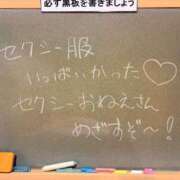 必ず黒板を書きましょう
セクシー服
いっぱいかった♡
セクシーおねえさん
めざすぞ〜!